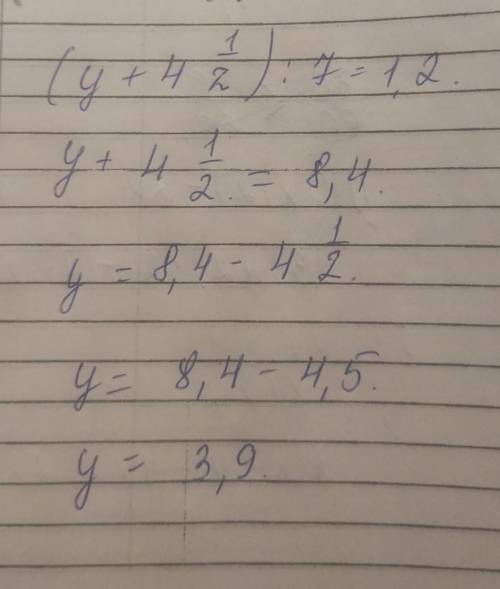 (y + 4 1/2) : 7 = 1,2.
y + 4 1/2. = 8,4.
y = 8,4 - 4 1/2.
y = 8,4 - 4,5.
y = 3,9.